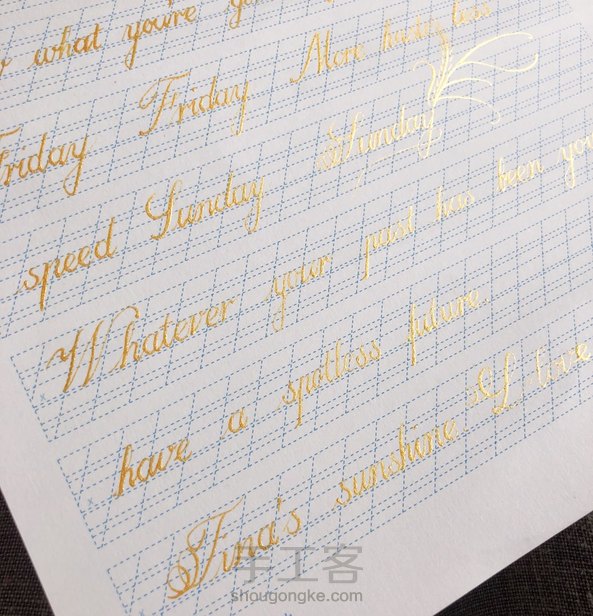 what you're
Friday Friday More haste, less
speed Sunday Sunday
Whatever your past has been you
have a spotless future.
Tina's sunshine I love
手工客
shougongke.com